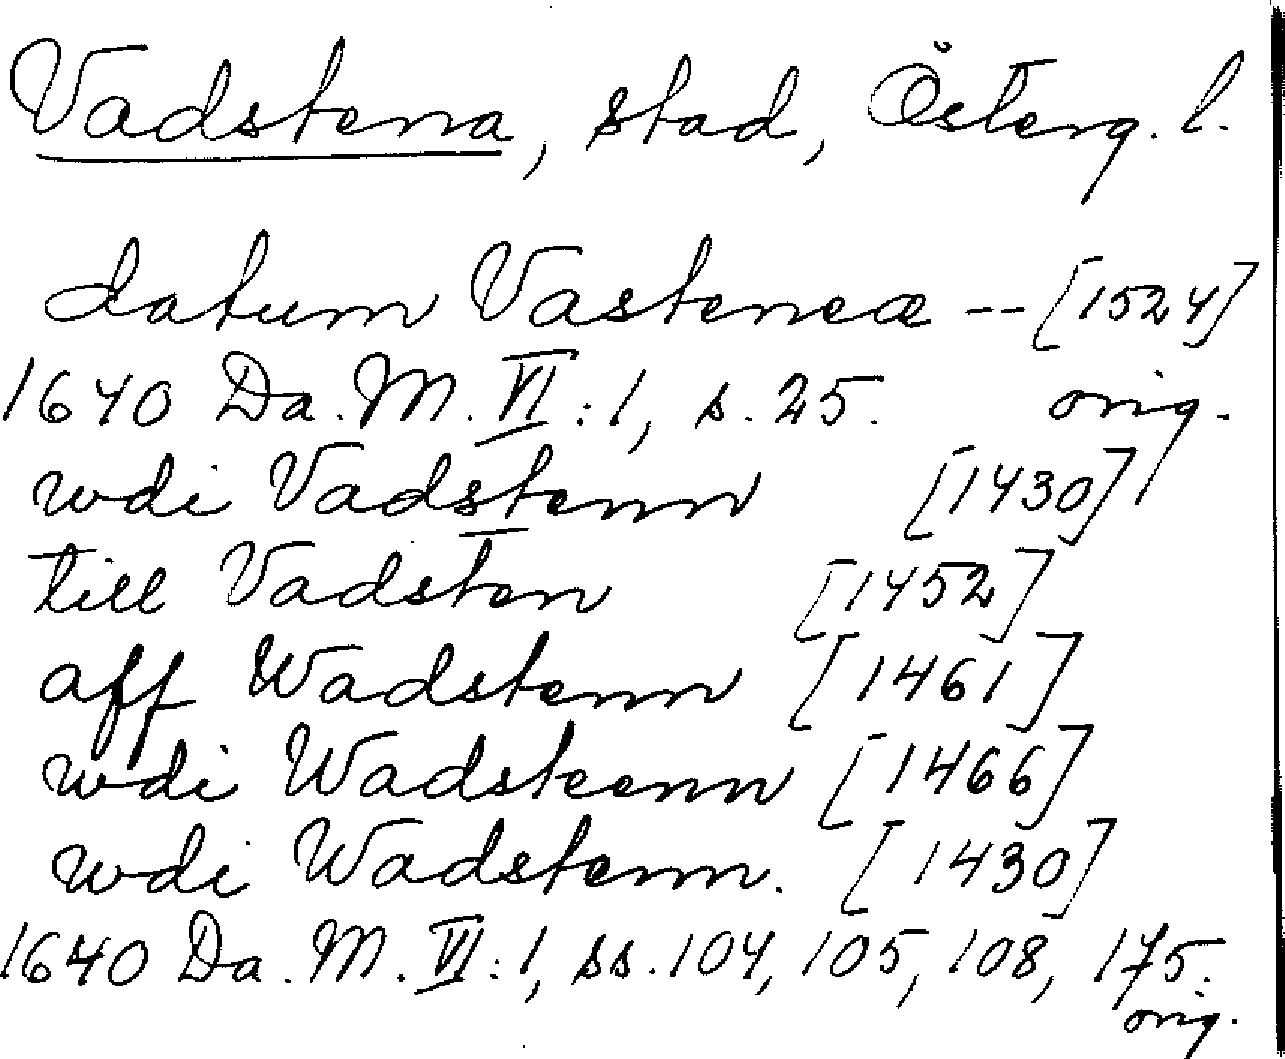 Vadstena, stad, Österg. l.
datum Vasteneæ -- [1524]
1640 Da. M. VI: 1, s. 25. orig.
wdi Vadstenn [1430]
till Vadsten [1452]
aff Wadstenn [1461]
wdi Wadsteenn [1466]
wdi Wadstenn. [1430]
1640 Da. M. VI: 1, ss. 104, 105, 108, 175.
orig.